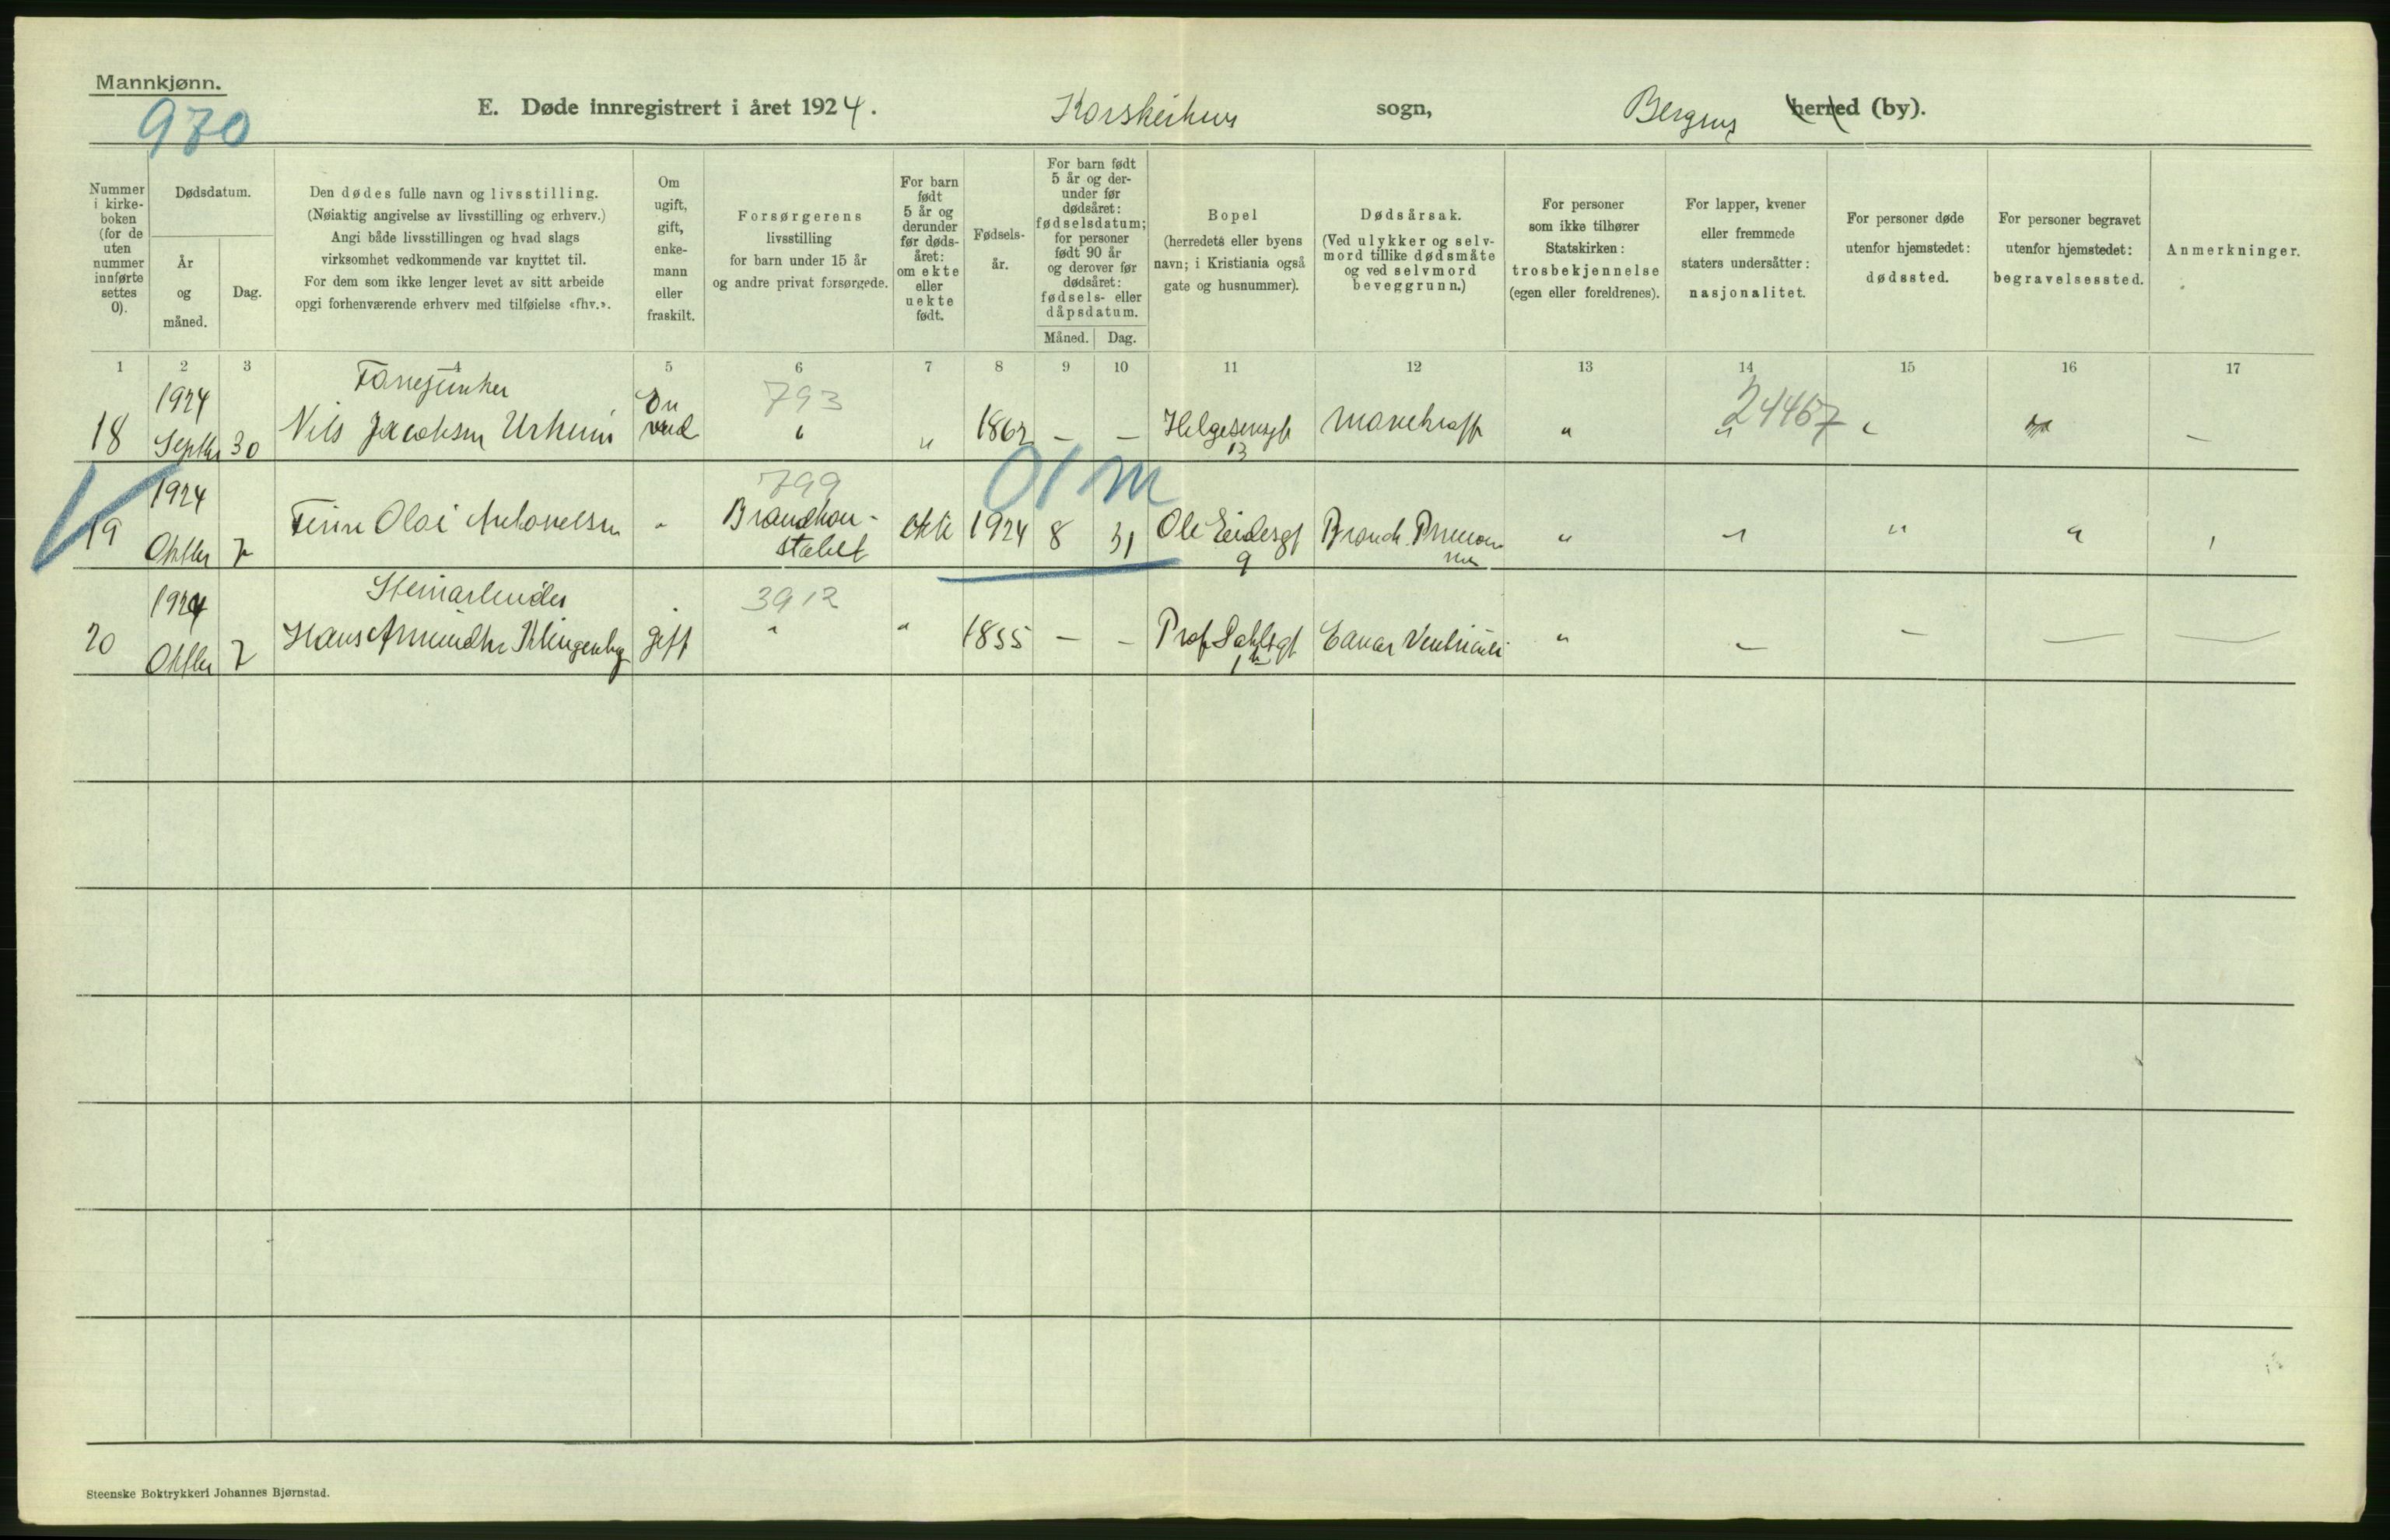 Mannkjønn.
970
E. Døde innregistrert i året 1924. sogn, Bergens herred (by).
Nummer i kirkeboken (for de uten nummer innførte settes 0).
Dødsdatum.
År og måned.
Dag.
Den dødes fulle navn og livsstilling.
(Nøiaktig angivelse av livsstilling og erhverv.)
Angi både livsstillingen og hvad slags
virksomhet vedkommende var knyttet til.
For dem som ikke lenger levet av sitt arbeide
opgi forhenværende erhverv med tilføielse «fhv.».
Om ugift, gift, enkemann eller fraskilt.
Forsørgerens
livsstilling
for barn under 15 år
og andre privat forsørgede.
For barn født 5 år og derunder før dødsåret: om ekte eller uekte født.
Fødselsår.
For barn født 5 år og derunder før dødsåret: fødselsdatum; for personer født 90 år og derover før dødsåret: fødsels- eller dåpsdatum.
Måned.
Dag.
Bopel
(herredets eller byens
navn; i Kristiania også
gate og husnummer).
Dødsårsak.
(Ved ulykker og selvmord tillike dødsmåte
og ved selvmord
beveggrunn.)
For personer
som ikke tilhører
Statskirken:
trosbekjennelse
(egen eller foreldrenes).
For lapper, kvener
eller fremmede
staters undersåtter:
nasjonalitet.
For personer døde
utenfor hjemstedet:
dødssted.
For personer begravet
utenfor hjemstedet:
begravelsessted.
Anmerkninger.
1 2 3 4 5 6 7 8 9 10 11 12 13 14 15 16 17
1924 793 24467
18 Septbr 30 Nils Jacobsen Urheim " " 1862 — — Helgesensgt 13 " " " —
01 m
1924 799
19 Oktbr 7 Olai Antonelsen " Brandkonstabel ekte 1924 8 31 Ole Eidesgt 9 Bronch. Pneumonie " " " " "
1924 3912
20 Oktbr 7 Hans gift " " 1855 — — Prof Dahlsgt Cancer Ventriculi " — — — —
Steenske Boktrykkeri Johannes Bjørnstad.